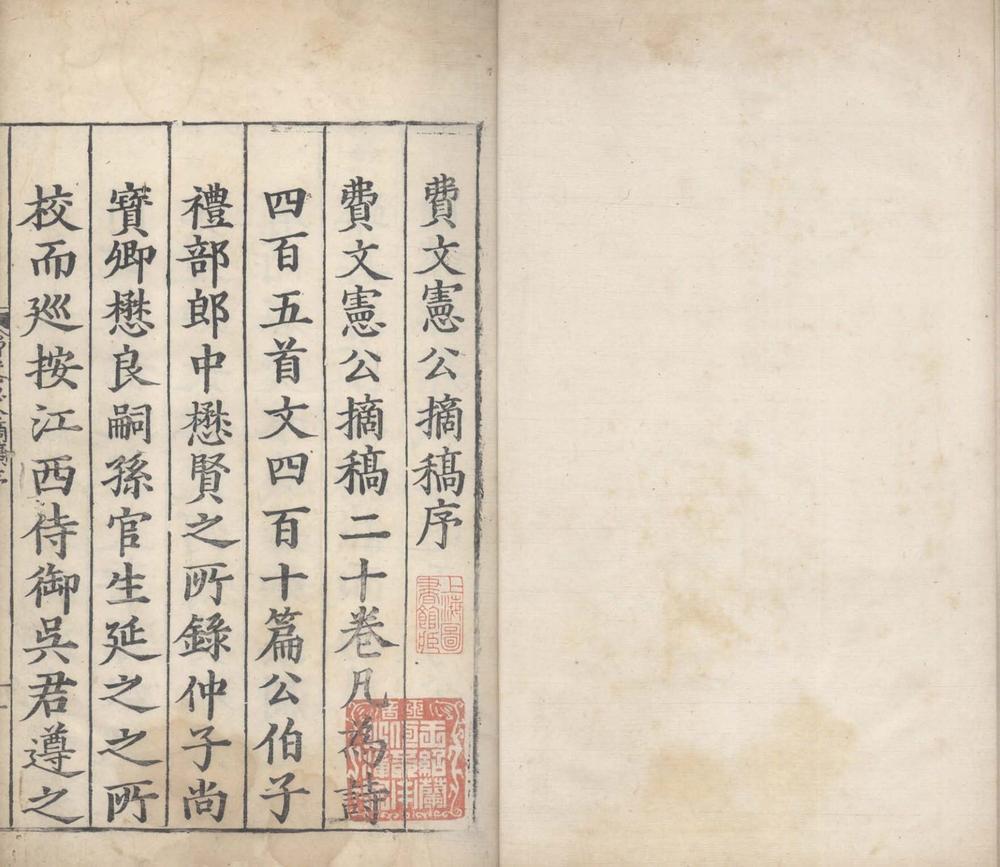 費文憲公摘稿序
費文憲公摘稿二十卷凡為詩
四百五首文四百十篇公伯子
禮部郎中懋賢之所錄仲子尚
寶卿懋良嗣孫官生延之之所
校而廵按江西侍御吳君遵之
上海圖
書館